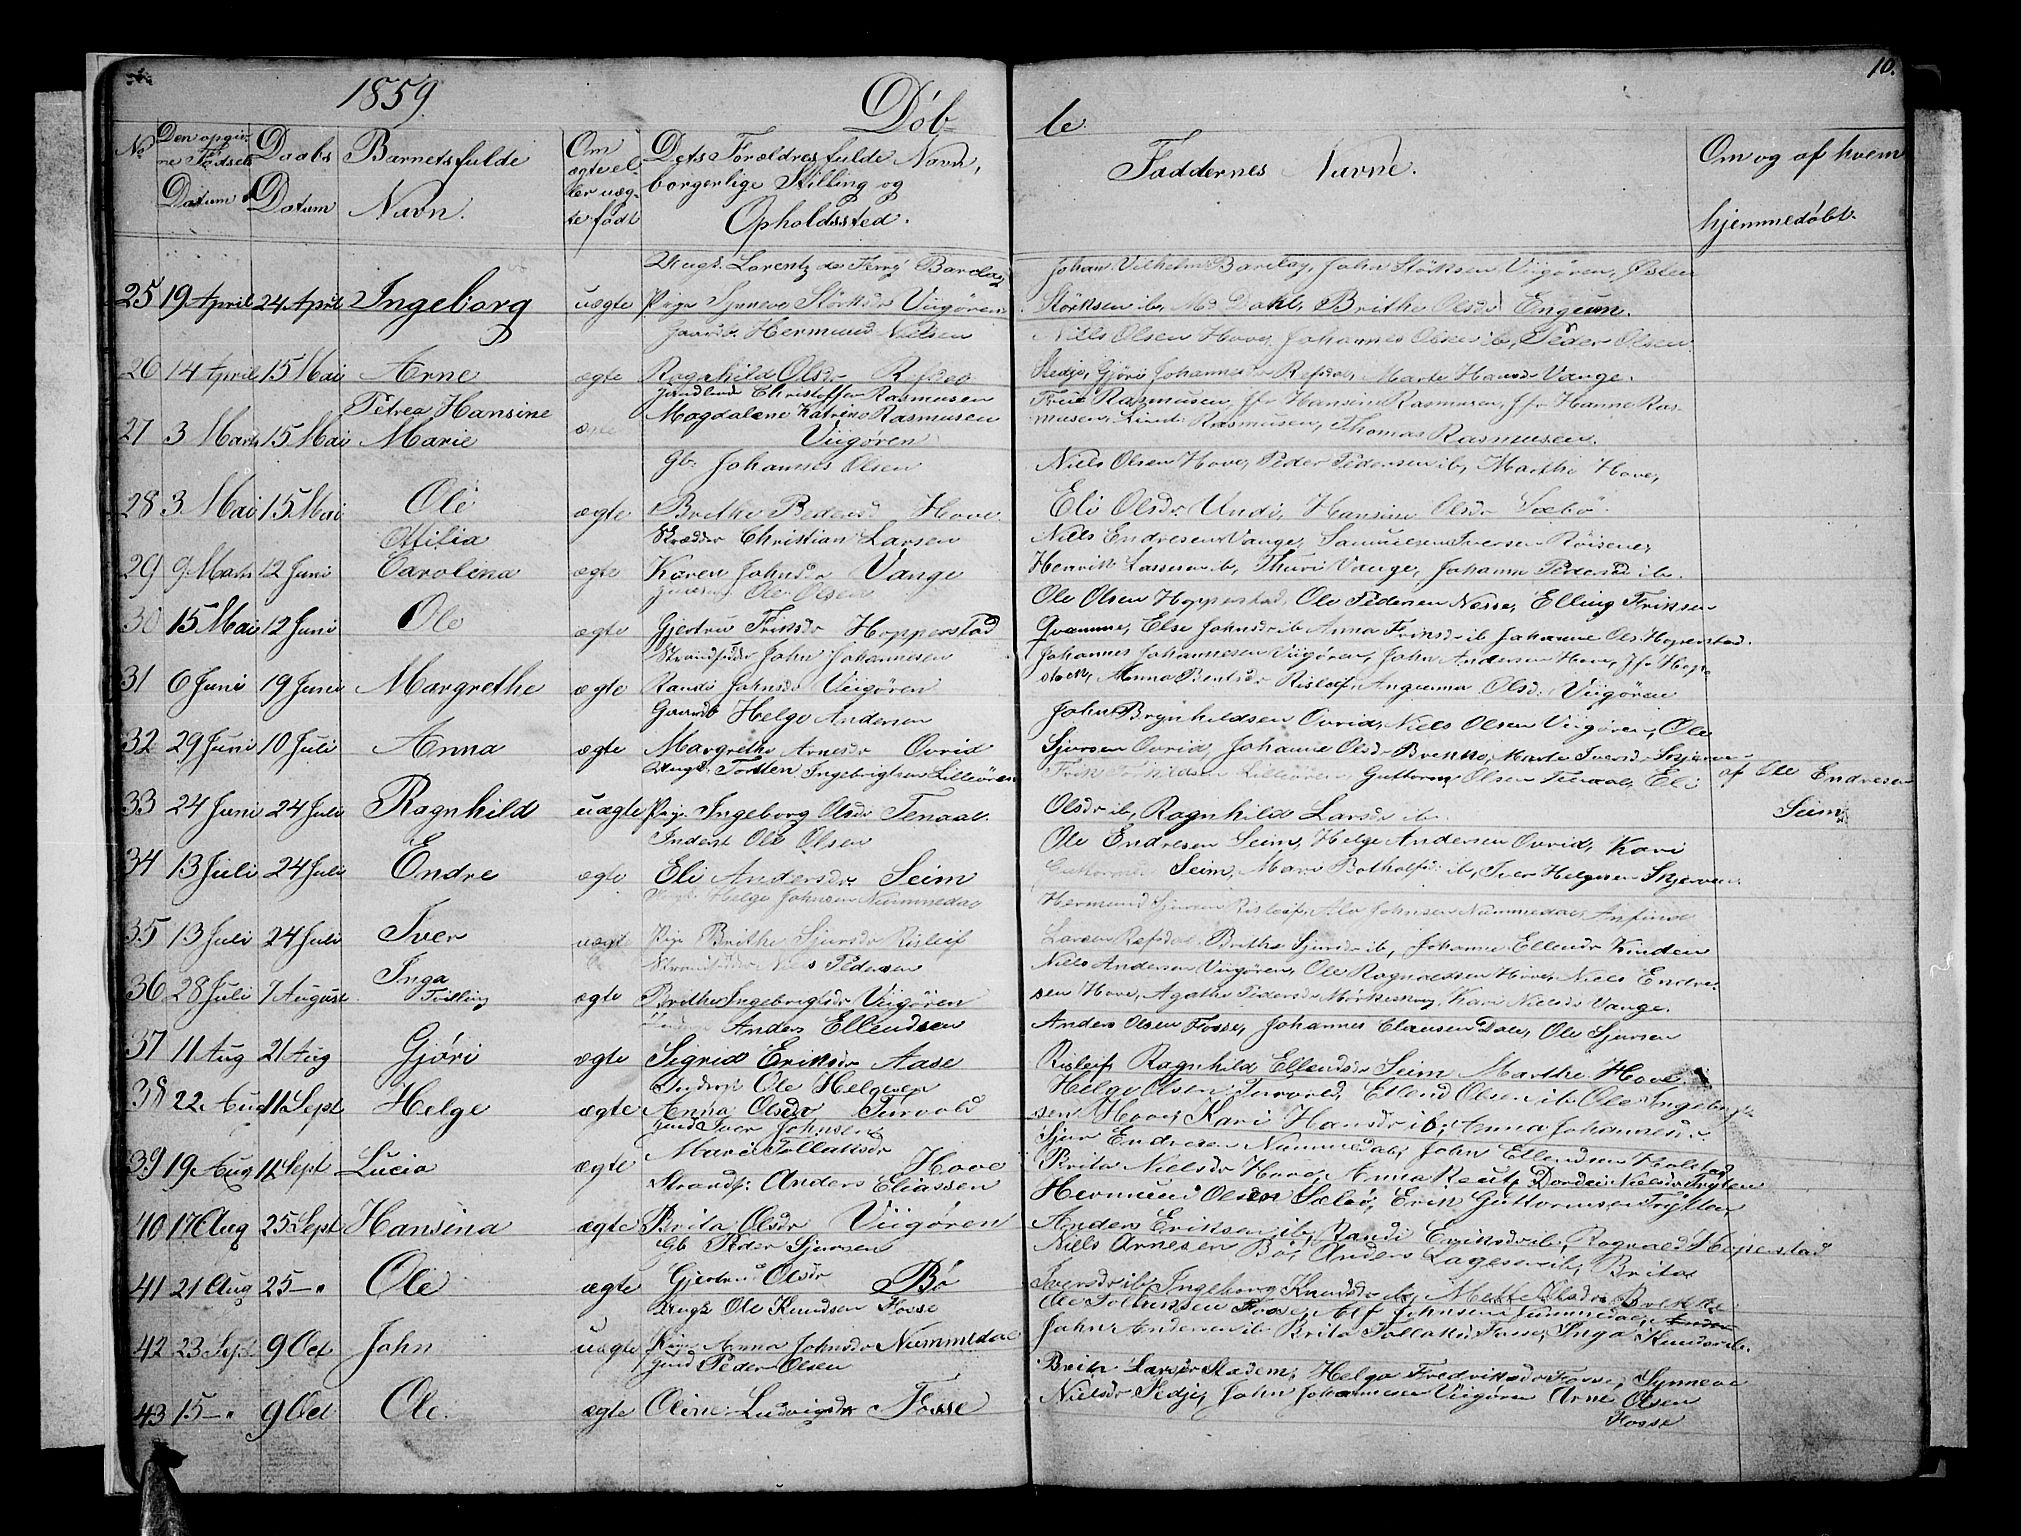 1859.
Döb
te.
10.
No
Den opgiv-
ne Födsels
Datum
Daabs
Datum
Barnets fulde
Navn.
Om
ægte el-
ler uæg-
te födt
Dets Forældres fulde Navn,
borgerlige Stilling og
Opholdssted.
Faddernes Navne.
Om og af hvem
hjemmedöbt.
25 19 April 24 April Ingeborg uægte
Ungk. Lorentz de Ferry Barclay
Pige Synneve Störksdr Viigören
Johan Vilhelm Barclay, John Störksen Viigören, Östen
Störksen ib, Md Dahl, Brithe Olsdr Engum.
26 14 April 15 Mai Arne ægte
Gaardbr. Hermund Nielsen
Ragnhild Olsdr Refsdal
Niels Olsen Hove, Johannes Olsen ib, Peder Olsen
Stedje, Gjöri Johannesdr Refsdal, Marte Hansdr Vange.
27 3 Marts 15 Mai Petrea Hansine
Marie ægte
Handlende Christoffer Rasmusen
Magdalene Katrine Rasmusen
Viigören
Frue Rasmusen, Jfr Hansine Rasmusen, Jfr Hanne Ras-
musen, Rasmusen, Thomas Rasmusen.
28 3 Mai 15 Mai Ole ægte
Gb. Johannes Olsen
Brithe Pedersd Hove.
Niels Olsen Hove, Peder Pedersen ib, Marthe Hove,
Eli Olsdr Undi, Hansine Olsdr Sæbö.
29 9 Marts 12 Juni Ottilia
Carolina ægte
Skrædder Christian Larsen
Karen Johnsdr Vange
Niels Endresen Vange, Samuel Iversen Röisene,
Henrik Lassesen ib, Thuri Vange, Johanne Pedersd ib.
30 15 Mai 12 Juni Ole ægte
Ole Olsen
Gjertru Eriksdr Hopperstad
Ole Olsen Hopperstad, Ole Pedersen Nesse, Elling Eriksen
Qvamme, Else Johnsdr ib Anna Eriksdr ib Johanne Ols. Hoperstad.
31 6 Juni 19 Juni Margrethe ægte
Strandsidder John Johannesen
Randi Johnsdr Viigören
Johannes Johannesen Viigören, John Andersen Hove, Jfr Hop-
stock, Anna Bentsdr Risleif Angunna Olsd. Viigören
32 29 Juni 10 Juli Anna ægte
Gaardb Helge Andersen
Margrethe Arnesdr Ovrid
John Brynhildsen Ovrid, Niels Olsen Viigören, Ole
Sjursen Ovrid, Johanne Olsdr Brekke, Marte Iversd Skjerven
33 24 Juni 24 Juli Ragnhild uægte
Ungk. Torsten Ingebrigtsen Lilleören
Pige Ingeborg Olsdr Tenaal.
Erik Lilleören, Guttorm Olsen Tenaal, Eli
Olsdr ib, Ragnhild Larsdr ib.
af Ole Endresen
Seim
34 13 Juli 24 Juli Endre ægte
Inderst Ole Olsen
Eli Andersdr Seim
Ole Endresen Seim, Helge Andersen Ovrid, Kari
Seim, Mari Botholfsd ib, Iver Helgesen Skjerven.
35 13 Juli 24 Juli Iver uægt
Ungk. Helge Johnsen Nummedal
Pige Brithe Sjursdr Risleif
Hermund Sjursen Risleif, Alv Johnsen Nummedal, Anfind
Larsen Refsdal, Brithe Sjursdr ib, Johanne Ellendsdr Kinden
36 28 Juli 7 August Inga
Tvilling ægte
Strandsidder Niels Pedersen
Brithe Ingebrigtsdr Viigören
Niels Andersen Viigören, Ole Ragnaldsen Hove, Niels Endre-
sen Hove, Agathe Pedersdr Mörkeskog, Kari Nielsdr Vange.
37 11 Aug 21 Aug Gjöri ægte
Anders Ellendsen
Sigrid Eriksdr Aase
Anders Olsen Fosse, Johannes Clausen Dale, Ole Sjursen
Risleif Ragnhild Ellendsdr Seim Marthe Hove
38 22 Aug 11 Sept Helge ægte
Inderst Ole Helgesen
Anna Olsdr Turvold
Helge Olsen Turvold, Ellend Olsen ib. Ole Ingebrigt-
sen Hove, Kari Hansdr ib, Anna Johannesdr
39 19 Aug 11 Sept Lucia ægte
Huusd Iver Johnsen
Mari Tollaksdr Hove
Sjur Endresen Nummedal, John Ellendsen Holstad
Brita Nielsdr Hove, Anna Reutz Dordei Nielsdr Trytten
40 17 Aug 25 Sept Hansina ægte
Strandsr. Anders Eliassen
Brita Olsdr Viigören
Hermund Olsen Sæbö, Erik Guttormsen Trytten,
Anders Eriksen ib, Randi Eriksdr ib, Ragnald Hoperstad
41 21 Aug 25 — " Ole ægte
Gb Peder Sjursen
Gjertrud Olsdr Bö
Niels Arnesen Bö, Anders Lagesen ib, Brita
Iversdr ib, Ingeborg Knudsdr ib, Mette Olsdr Brekke
42 23 Sept 9 Oct John uægte
Ungk. Ole Knudsen Fosse
Pige Anna Johnsdr Nummedal
Ole Tollaksen Fosse, Alf Johnsen Nummedal,
John Andersen ib. Brita Tollaksd Fosse, Inga Knudsdr ib.
43 15 — " 9 Oct Ole. ægte
Huusd Peder Olsen
Oline Ludvigsdr Fosse
Brita Larsdr Stadem, Helga Fredriksdr Fosse, Synneve
Nielsdr Stedje, John Johannesen Viigören Arne Olsen
Fosse